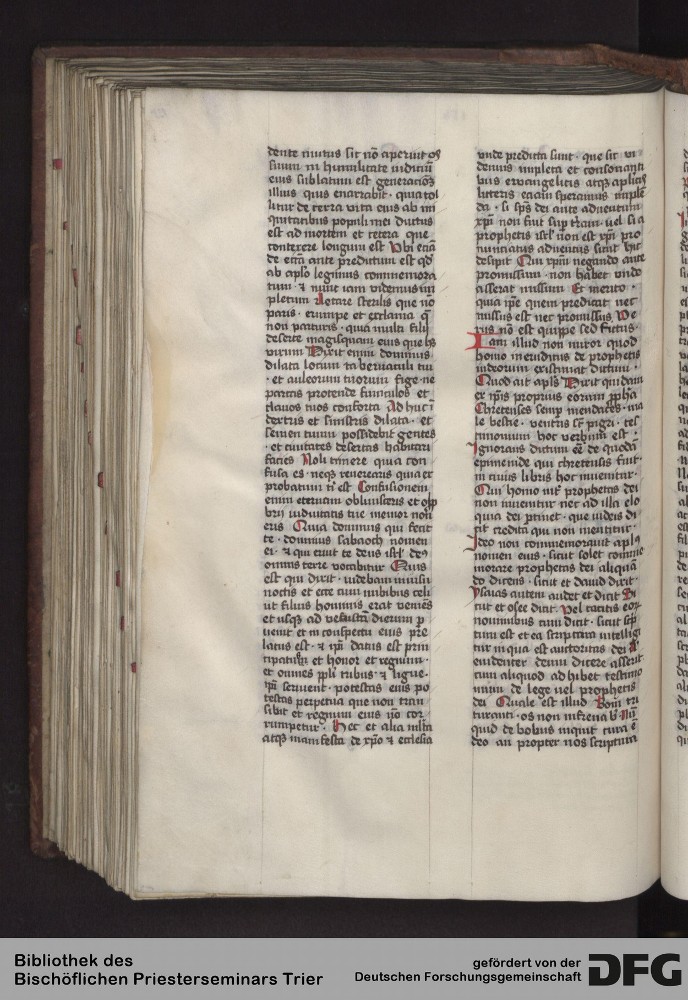 dente mutus sic nō aperuit os
suum in humilitate iudiciū
eius sublatum est generacionē
illius quis enarrabit · quia tol
litur de terra vita eius ab ini
quitatibus populi mei ductus
est ad mortem et cetera que
contexere longum est Vbi eciā
de ecclā ante predictum est qd̓
ab aplo legimus commemora
tum · & nunc iam videmus im
pletum Letare sterilis que nō
paris · erumpe et exclama q̄
non parturis · quia multi filij
deserte magisquam eius que hȝ
virum Dixit enim dominus
dilata locum tabernaculi tui
· et auleorum tuorum fige ne
parcas protende funiculos et
clauos tuos conforta Ad huc ī
dextris et sinistris dilata · et
semen tuum possidebit gentes
· et ciuitates desertas habitari
facies Noli timere quia con
fusa es · neqȝ reuerearis quia ex
probatum ti est Confusionem
enim eternam obliuisceris et opp
brij viduitatis tue memor non
eris Quia dominus qui fecit
te · dominus sabaoch nomen
ei · & qui eruit te deus isrl' deus
omnis terre vocabitur Eius
est qui dixit · videbam in visu
noctis et ecce cum nubibus celi
ut filius hominis erat veniēs
et usqȝ ad vetustū dierum p
uenit et in conspectu eius pre
latus est · & ipī datus est prin
cipatus et honor et regnum ·
et omnes ppli tribus · & ligue ·
ipī seruient · potestas eius po
testas perpetua que non tran
sibit et regnum eius nō cor
rumpetur · Hec et alia mlta
atqȝ manifesta de xpō & ecclesia
vnde predicta sunt · que sic vi
demus impleta et consonanti
bus ewangelicis atqȝ aplicis
litteris eciam speramus implē
da · si sps dei ante aduentum
xpī non fuit sup tram · uel si a
prophetis isrl' non est xpī pro
nunciatus aduentus sicut hic
desipit Qui xpm negando ante
promissum · non habet vnde
asserat missum Et merito ·
quia ipē quem predicat nec
missus est nec promissus Ve
rus nō est quippe sed fictus ·
Iam illud non miror quod
homo ineruditus de prophetis
iudeorum existimat dictum ·
Quod ait apls Dixit quidam
ex ipīs proprius eorum ppha
Chretenses semp mendaces · ma
le bestie · ventris sc̄ pigri · tes
timonium hoc verbum est ·
Ignorans dictum eē de quodā
epimenide qui chretensis fuit ·
in cuius libris hoc inuenitur ·
Qui homo int̄ prophetas dei
non inuenitur nec ad illa elo
quia dei ptinet · que iudeis di
cit credita qui non mentitur
Ideo non commemorauit apls
nomen eius · sicut solet comme
morare prophetas dei aliquā
do dicens · sicut et dauid dixit ·
Ysaias autem audet et dicit Si
cut et osee dicit · Vel tacitis eoȝ
nominibus cum dicit · sicut scp
tum est et ea scriptura intelligi
tur in qua est auctoritas dei
euidenter deum dicere asserit
cum aliquod adhibet testimo
nium de lege uel prophetis
dei Quale est illud Boui tri
turanti · os non infrenabis
quid de bobus inquit cura ē
deo an propter nos scriptum
Bibliothek des
Bischöflichen Priesterseminars Trier
gefördert von der
Deutschen Forschungsgemeinschaft
DFG